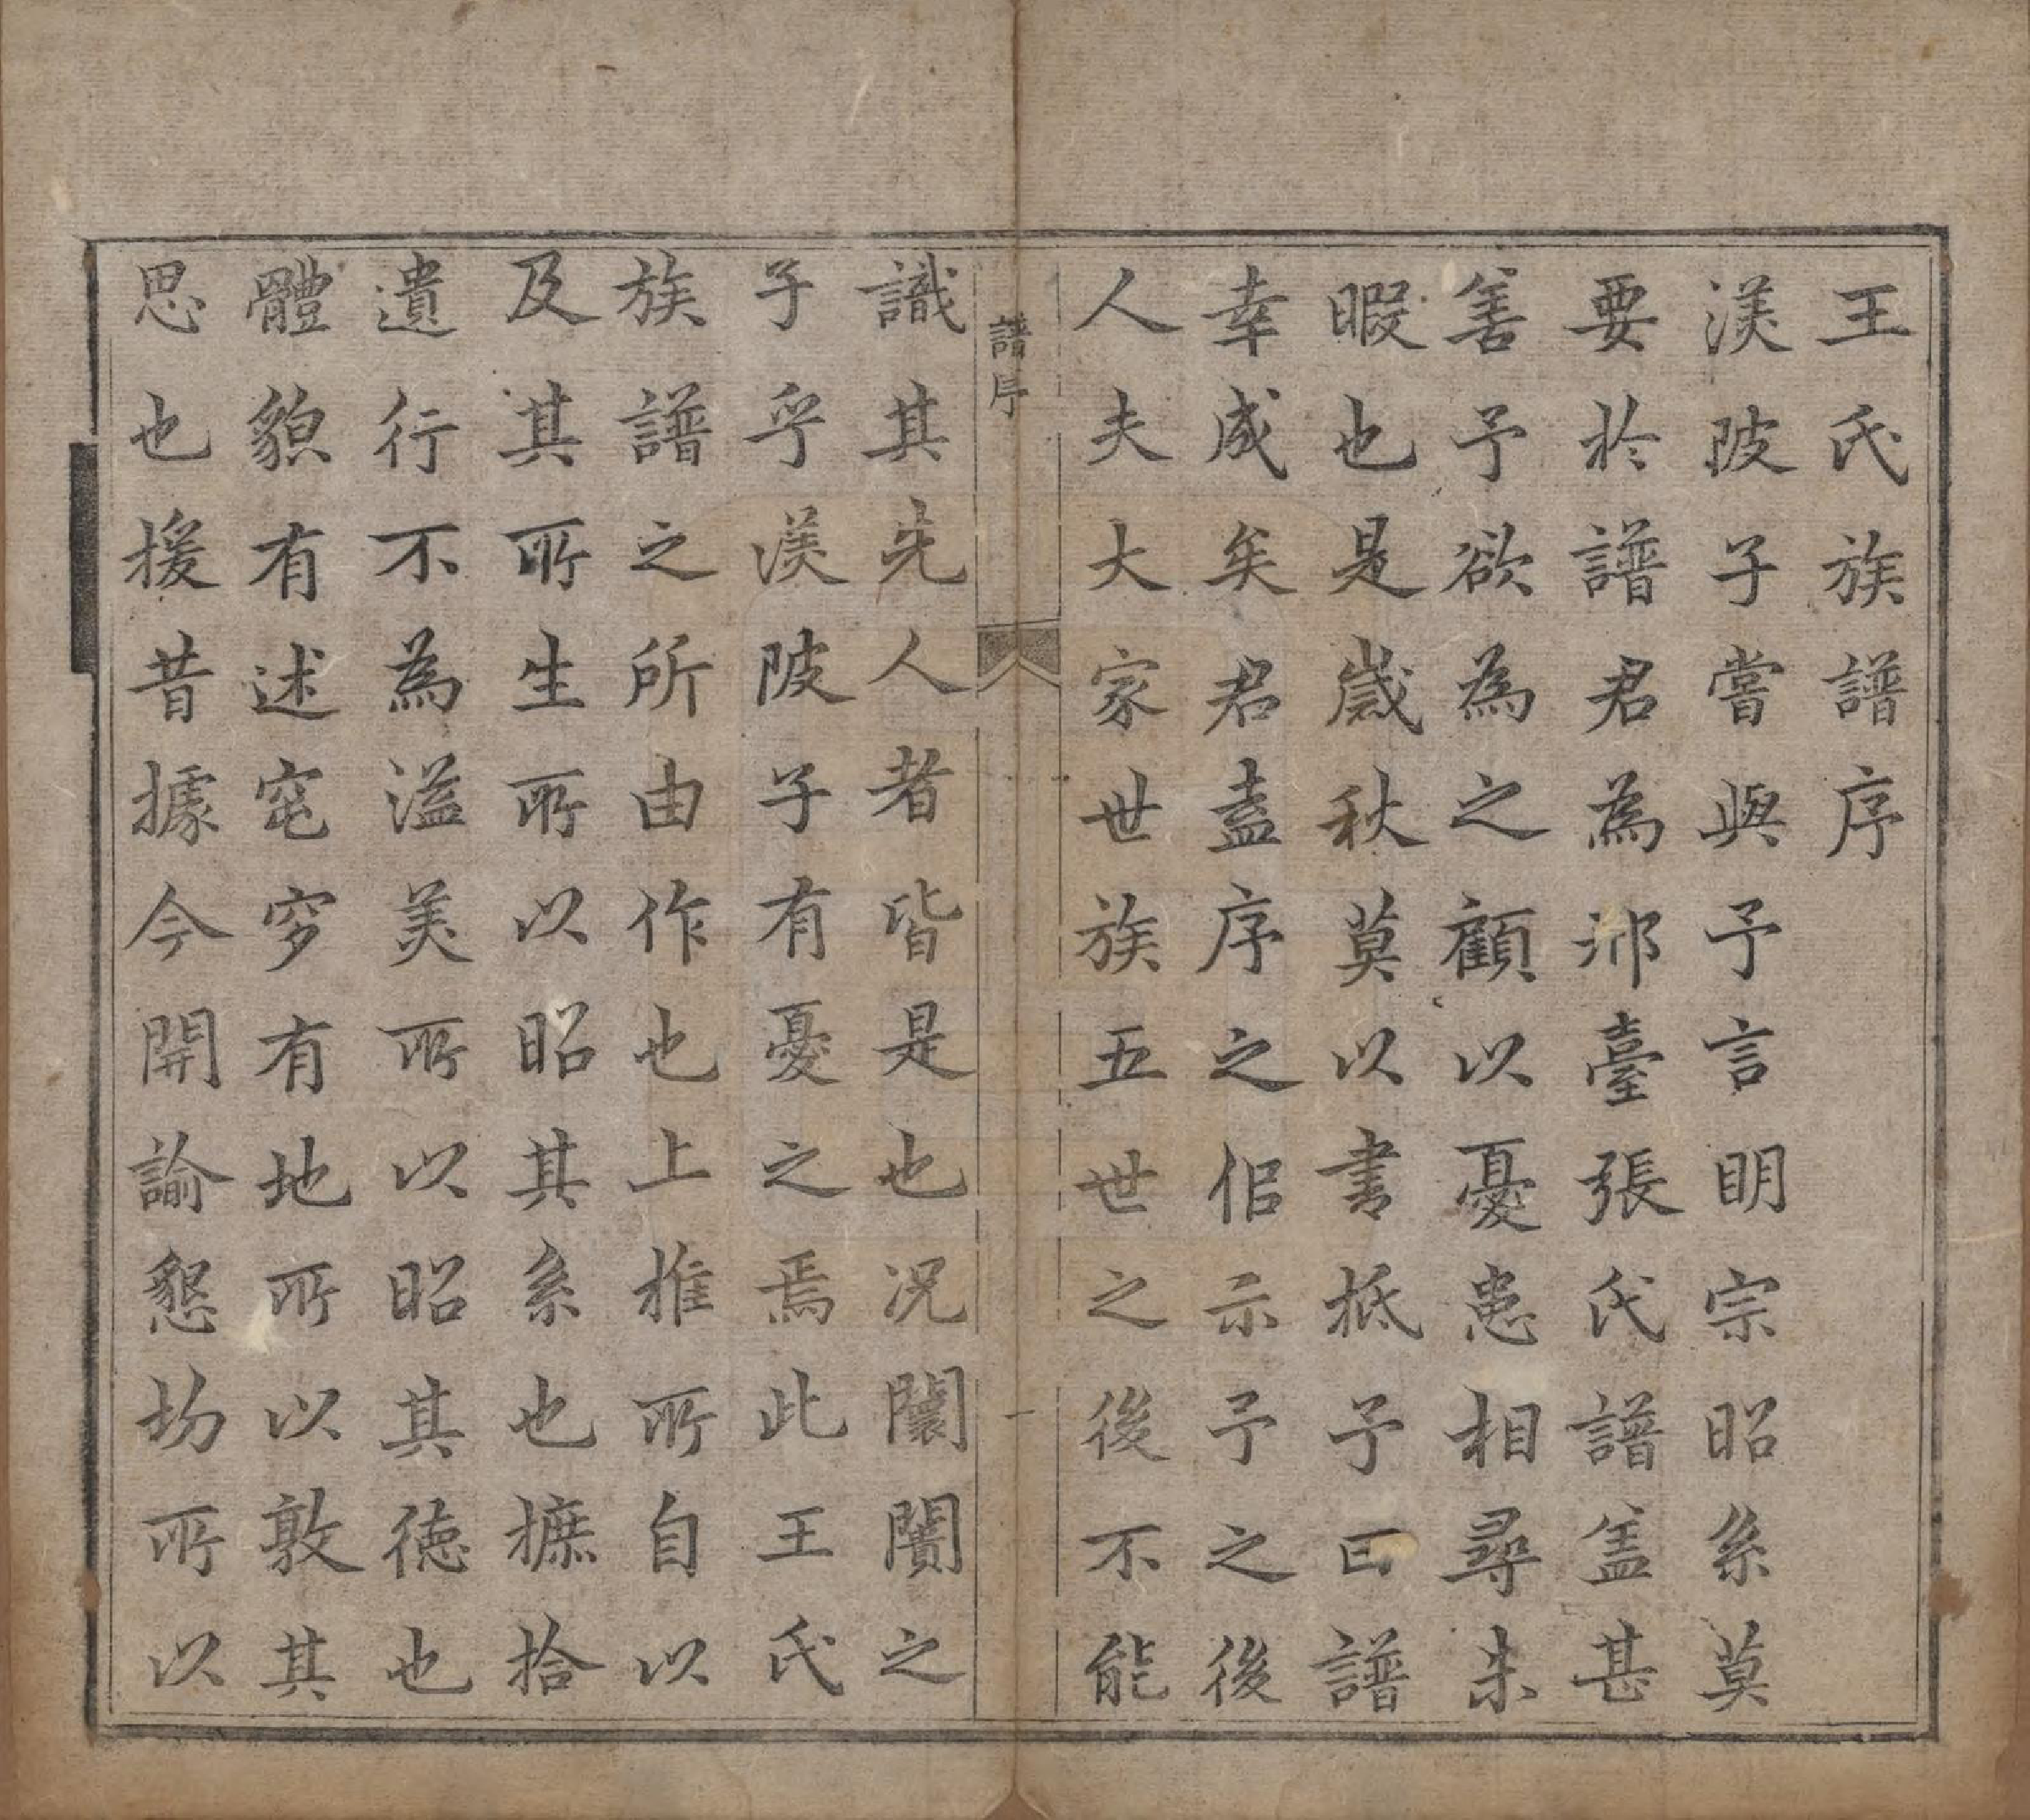 王氏族譜序
渼陂子嘗與予言明宗昭系莫
要於譜君為邢臺張氏譜盖甚
善予欲為之顧以憂患相尋未
暇也是歲秋莫以書抵予曰譜
幸成矣君盍序之侶示予之後
人夫大家世族五世之後不能
譜序
一
識其先人者皆是也況闤闠之
子乎渼陂子有憂之焉此王氏
族譜之所由作也上推所自以
及其所生所以昭其系也摭拾
遺行不為溢美所以昭其德也
體貌有述窀穸有地所以敦其
思也援昔據今開諭懇切所以